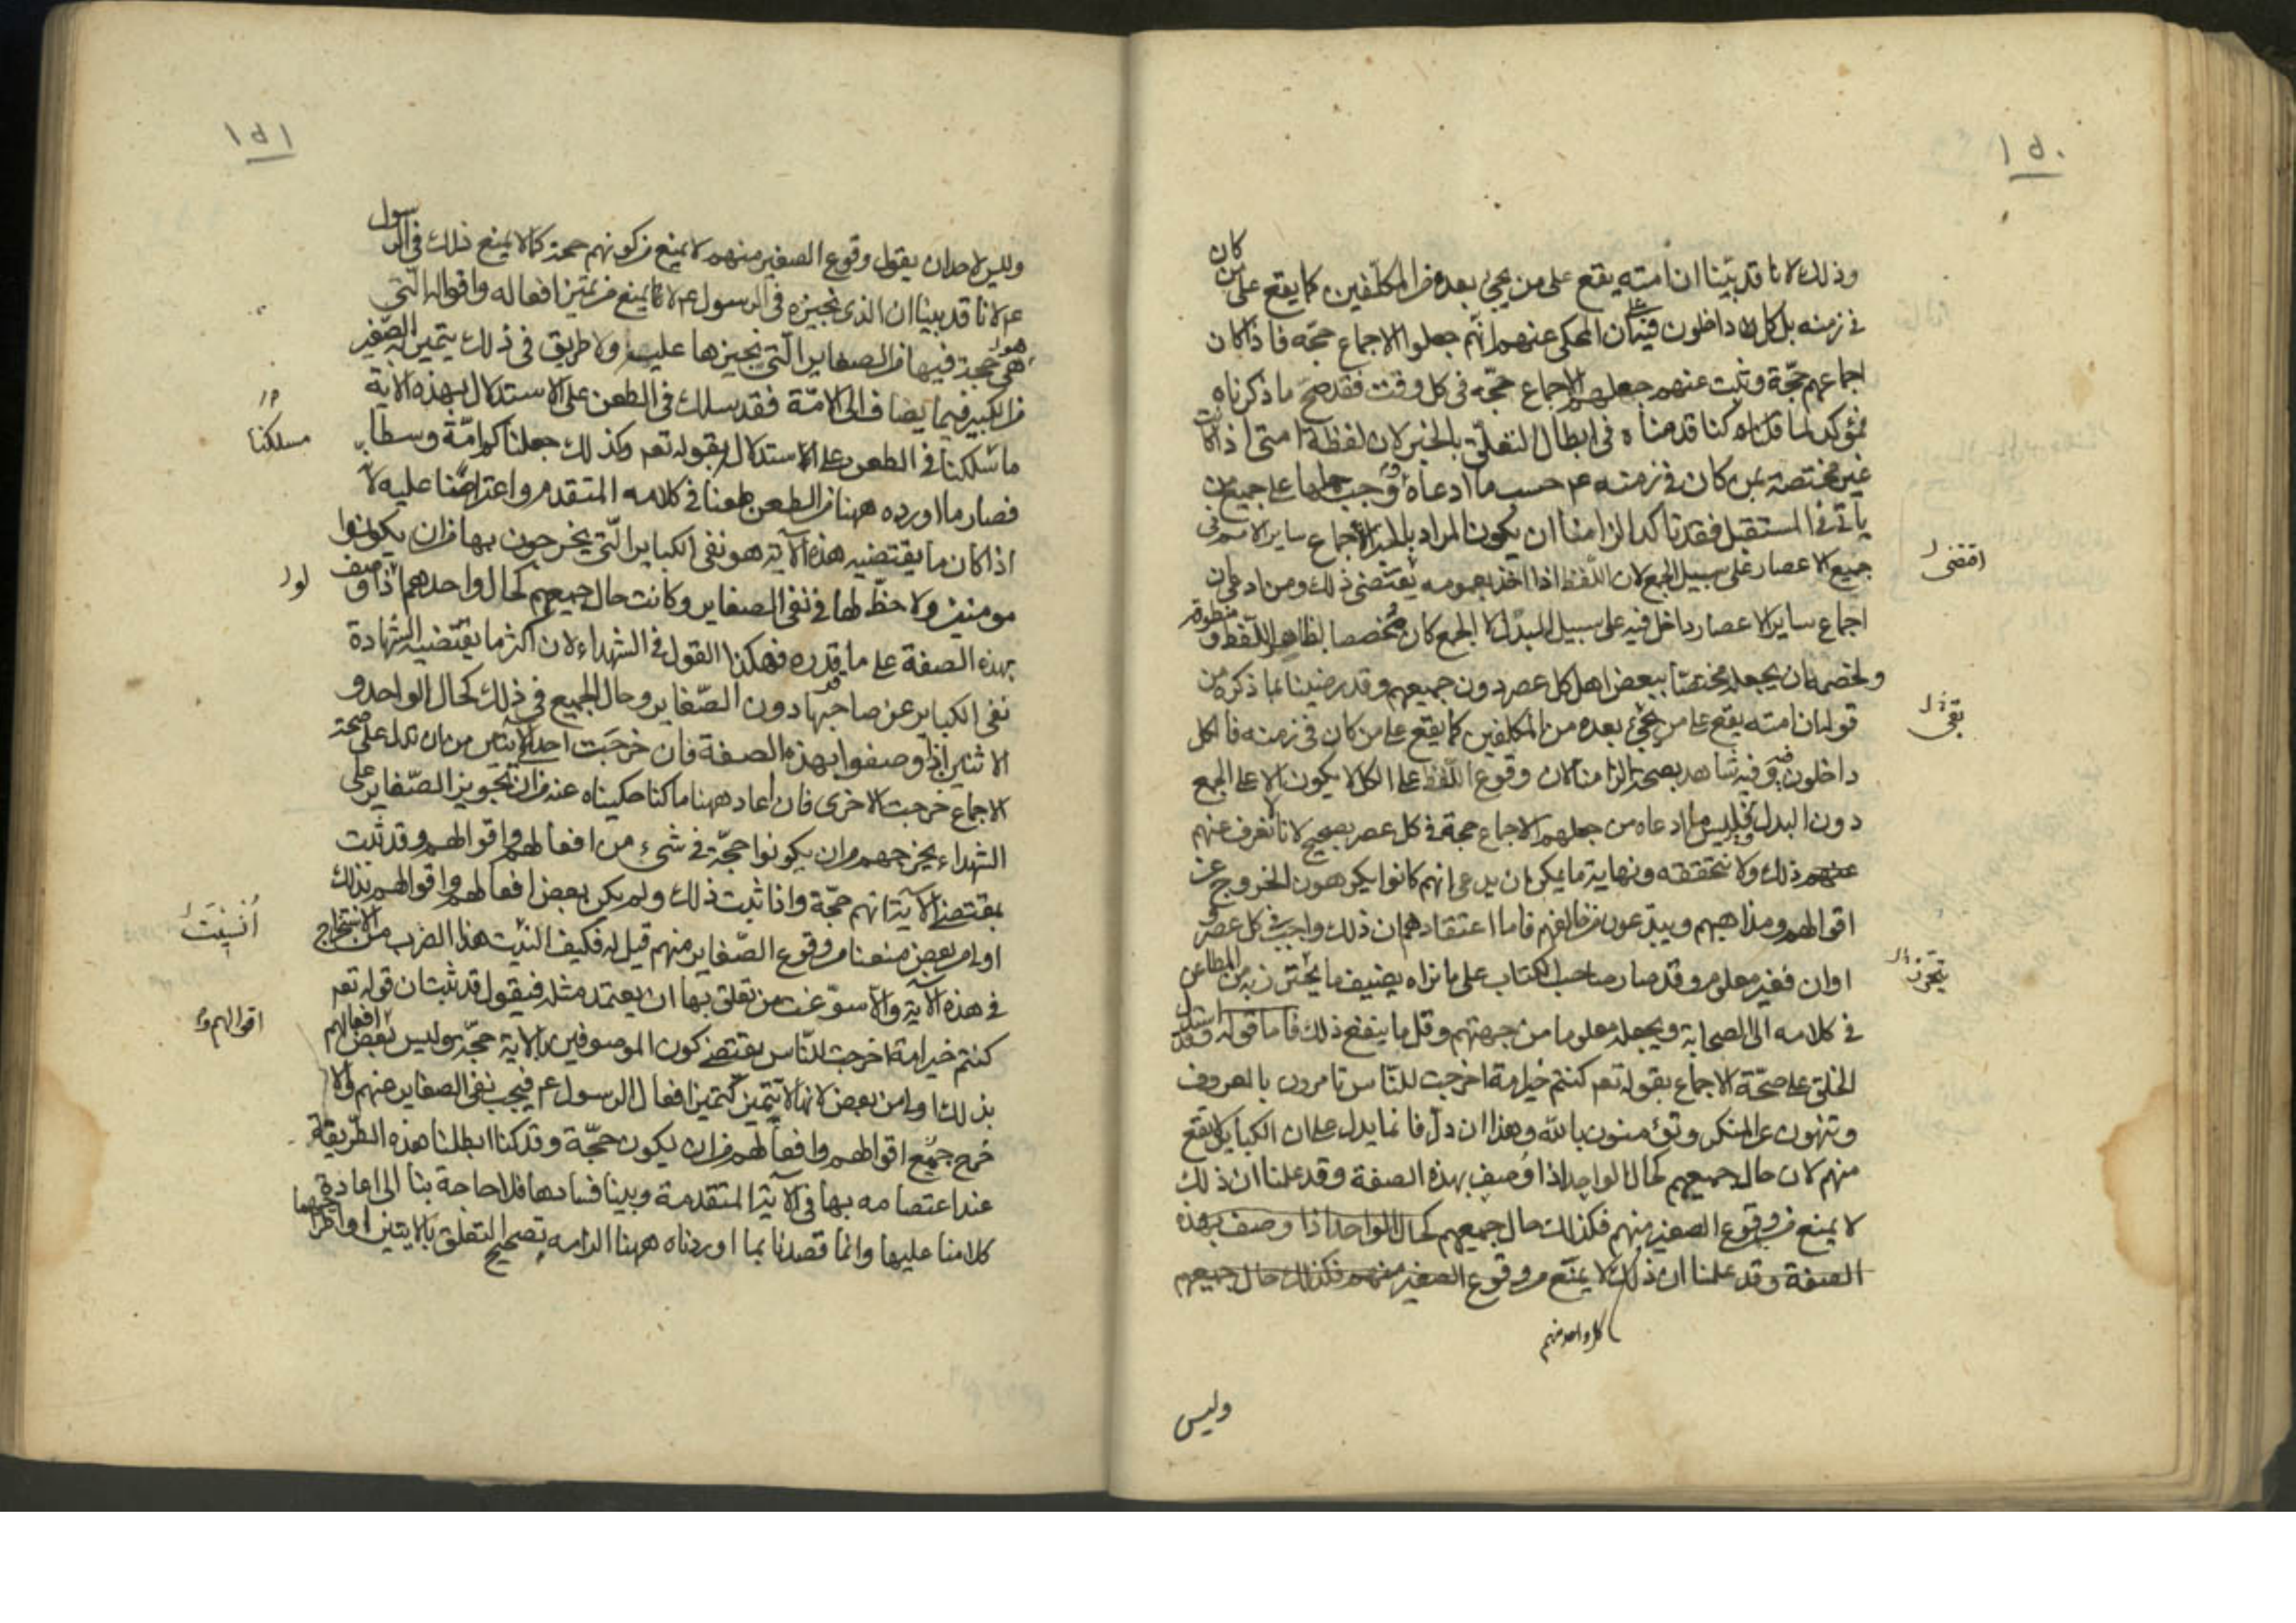 ١٥٠
وذلك لانا قد بينا ان امته يقع على من يجئ بعده من المكلفين كما يقع على من كان
في زمنه بل كل داخلون فيه فان المحكى عنهم انهم جعلوا الاجماع حجة فاذا كان
اجماعهم حجة وثبت عنهم جعلهم الاجماع حجة في كل وقت فقد صح ما ذكرناه
فمؤكد لما كنا قدمناه في ابطال التعلق بالخبر لان لفظة امتى اذا كانت
غير مختصة بمن كان في زمنه عم حسب ما ادعاه وجب حملها على جميع من
ياتى في المستقبل فقد تاكد الزامنا ان يكون المراد بالخبر اجماع ساير الامم في
جميع الاعصار على سبيل الجمع لان اللفظ اذا اخذ بعمومه يقتضى ذلك ومن ادعى ان
اقتضى
اجماع ساير الاعصار داخل فيه على سبيل البدل لا الجمع كان مخصصا لظاهر اللفظ و
ولخصمه ان يجعله مختصا ببعض اهل كل عصر دون جميعهم وقد رضينا بما ذكره من
قوله ان امته يقع على من يجئ بعده من المكلفين كما يقع على من كان في زمنه فالكل
داخلون فيه وفيه شاهد بصحة الزامنا لان وقوع اللفظ على الكل لا يكون الا على الجمع
دون البدل وليس ما ادعاه من جعلهم الاجماع حجة في كل عصر بصحيح لانا لا نعرف عنهم
عنهم ذلك ولا نتحققه ونهاية ما يمكن ان يدعى انهم كانوا يكرهون الخروج عن
اقوالهم ومذاهبهم ويبدعون من خالفهم فاما اعتقادهم ان ذلك واجب في كل عصر و
اوان فغير معلوم وقد صار صاحب الكتاب على ما نراه يضيف ما يحترز به من المطاعن
في كلامه الى الصحابة ويجعله معلوما من جهتهم وقل ما ينفع ذلك فاما قوله وقد استدل
الخلق على صحة الاجماع بقوله تعم كنتم خير امة اخرجت للناس تامرون بالمعروف
وتنهون عن المنكر وتؤمنون بالله وهذا ان دل فانما يدل على ان الكباير لا يقع
منهم لان حال جميعهم كحال الواحد اذا وصف بهذه الصفة وقد علمنا ان ذلك
لا يمنع من وقوع الصغير منهم فكذلك حال جميعهم كحال الواحد اذا وصف بهذه
الصفة وقد علمنا ان ذلك لا يمنع من وقوع الصغير منهم فكذلك حال جميعهم
كل واحد منهم
وليس
١٥١
وليس لاحد ان يقول وقوع الصغير منهم لا يمنع من كونهم حجة كما لا يمنع ذلك في الرسول
عم لانا قد بينا ان الذى نجيزه في الرسول عم لا يمنع من تميز افعاله واقواله التى
هى حجة فيها من الصغاير التى نجيزها عليه ولا طريق في ذلك يتميز به الصغير
من الكبير فيما يضاف الى الامة فقد سلك في الطعن على الاستدلال بهذه الاية
مسلكنا
ما سلكنا في الطعن على الاستدلال بقوله تعم وكذلك جعلناكم امة وسطا
فصار ما اورده ههنا من الطعن طعنا في كلامه المتقدم واعتراضنا عليه لا
اذا كان ما يقتضيه هذه الاية هو نفى الكباير التى يخرجون بها من ان يكونوا
مومنين ولا حظ لها في نفى الصغاير وكانت حال جميعهم كحال واحدهم اذا وصف
بهذه الصفة على ما قدره فهكذا القول في الشهداء لان اكثر ما يقتضيه الشهادة
نفى الكباير عن صاحبها دون الصغاير وحال الجميع في ذلك كحال الواحد و
الاثنين اذا وصفوا بهذه الصفة فان خرجت احد الايتين من ان تدل على صحة
الاجماع خرجت الاخرى فان اعاد ههنا ما كنا حكيناه عنه من ان تجويز الصغاير على
الشهداء يخرجهم من ان يكونوا حجة في شىء من افعالهم واقوالهم وقد ثبت
بمقتضى الاية انهم حجة واذا ثبت ذلك ولم يكن بعض افعالهم واقوالهم بذلك
اولى من بعض منعنا من وقوع الصغاير منهم قيل له فكيف انسيت هذا الضرب من الاستخراج
انسيت
في هذه الاية والا سوغت من تعلق بها ان يعتمد مثله فيقول قد ثبت ان قوله تعم
كنتم خير امة اخرجت للناس يقتضى كون الموصوفين بالاية حجة وليس بعض افعالهم
اقوالهم و
بذلك اولى من بعض لانها لا تتميز كتميز افعال الرسول عم فيجب نفى الصغاير عنهم والا
خرج جميع اقوالهم وافعالهم من ان يكون حجة وقد كنا ابطلنا هذه الطريقة
عند اعتصامه بها في الاية المتقدمة وبينا فسادها فلا حاجة بنا الى اعادة
كلامنا عليها وانما قصدنا بما اوردناه ههنا الزامه تصحيح التعلق بالايتين او اطراحهما